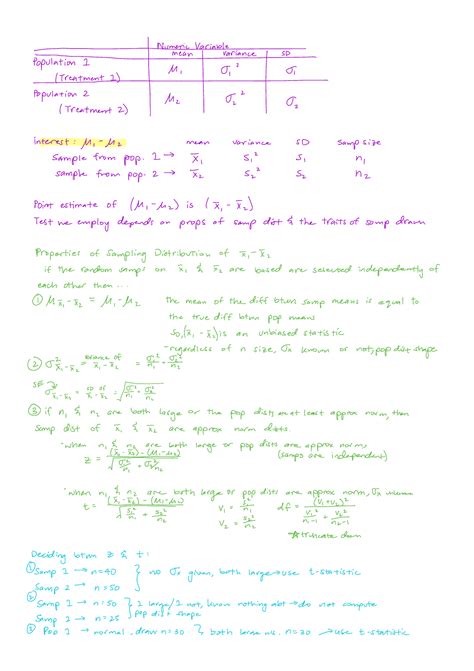 Numeric Variable
mean variance SD
Population 1
(Treatment 1) μ₁ σ₁² σ₁
Population 2
(Treatment 2) μ₂ σ₂² σ₂
Interest: μ₁-μ₂ mean variance SD samp size
Sample from pop. 1 → x̅₁ s₁² s₁ n₁
sample from pop. 2 → x̅₂ s₂² s₂ n₂
Point estimate of (μ₁-μ₂) is (x̅₁-x̅₂)
Test we employ depends on props of samp dist & the traits of samp drawn
Properties of Sampling Distribution of x̅₁-x̅₂
if the random samps on x̅₁ & x̅₂ are based are selected independently of
each other then...
① μ x̅₁-x̅₂ = μ₁-μ₂ the mean of the diff btwn samp means is equal to
the true diff btwn pop means
so, (x̅₁-x̅₂) is an unbiased statistic
-regardless of n size, σx known or not, pop dist shape
② σ² x̅₁-x̅₂ = variance of x̅₁-x̅₂ = σ₁²/n₁ + σ₂²/n₂
SE σ x̅₁-x̅₂ = SD of x̅₁-x̅₂ = √(σ₁²/n₁ + σ₂²/n₂)
③ if n₁ & n₂ are both large or the pop dists are at least approx norm, then
samp dist of x̅₁ & x̅₂ are approx norm dists.
·when n₁ & n₂ are both large or pop dists are approx norm,
z = ((x̅₁-x̅₂)-(μ₁-μ₂))/√(σ₁²/n₁ + σ₂²/n₂) (samps are independent)
·when n₁ & n₂ are both large or pop dists are approx norm, σx unknown
t = ((x̅₁-x̅₂)-(μ₁-μ₂))/√(s₁²/n₁ + s₂²/n₂) V₁ = s₁²/n₁ df = (V₁+V₂)²/(V₁²/(n₁-1) + V₂²/(n₂-1))
V₂ = s₂²/n₂
truncate down
Deciding btwn z & t:
① Samp 1 → n=40 } no σx given, both large → use t-statistic
Samp 2 → n=50
② Samp 1 → n=50 } 1 large/1 not, know nothing abt → do not compute
Samp 2 → n=25 pop dist shape
③ Pop 1 → normal, draw n=30 } both large ns. n=30 → use t-statistic